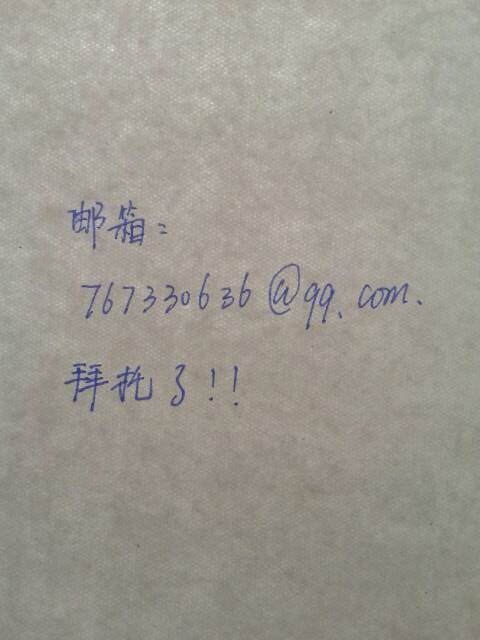 邮箱：
767330636@qq.com.
拜托了!!